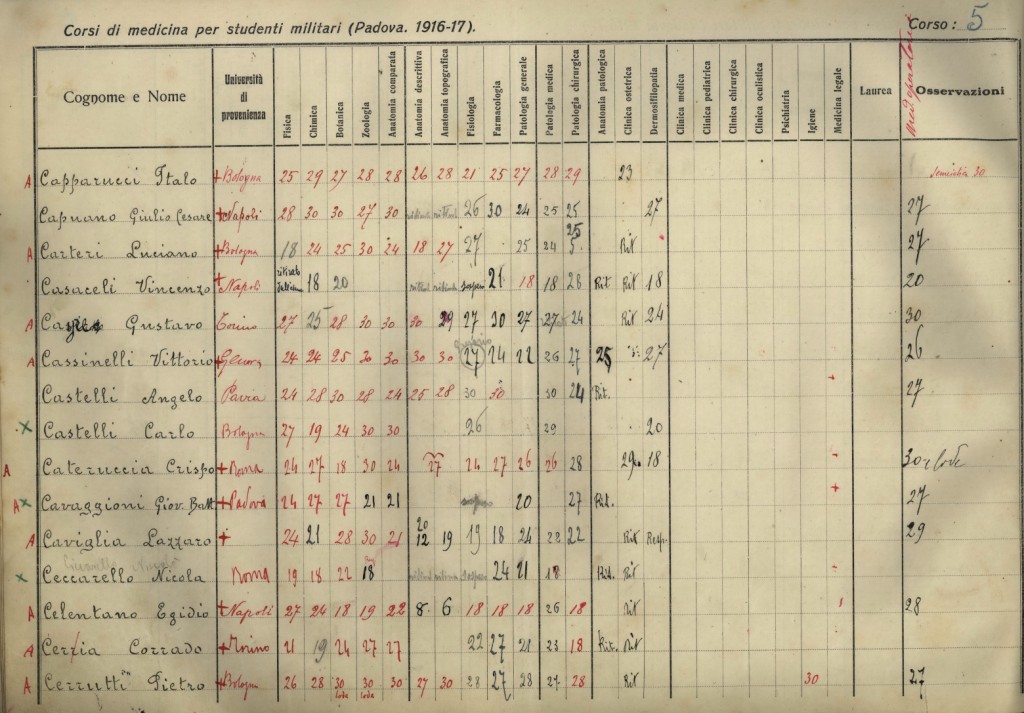 Corsi di medicina per studenti militari (Padova. 1916-17). Corso: 5
Cognome e Nome Università di provenienza Fisica Chimica Botanica Zoologia Anatomia comparata Anatomia descrittiva Anatomia topografica Fisiologia Farmacologia Patologia generale Patologia medica Patologia chirurgica Anatomia patologica Clinica ostetrica Dermosifilopatia Clinica medica Clinica pediatrica Clinica chirurgica Clinica oculistica Psichiatria Igiene Medicina legale Laurea Osservazioni
A Capparucci Italo + Bologna 25 29 27 28 28 26 28 21 25 27 28 29 23 30
Capuano Giulio Cesare + Napoli 28 30 30 27 30 26 30 24 25 25 27 27
A Carteri Luciano + Bologna 18 24 25 30 24 18 27 27 25 24 25 Rit 27
Casaceli Vincenzo + Napoli 18 20 21 18 18 26 Rit Rit 18 20
A Gustavo Torino 27 25 28 30 30 30 29 27 30 27 27 24 Rit 24 30
A Cassinelli Vittorio + Genova 24 24 25 30 30 30 27 24 22 26 27 25 27 26
Castelli Angelo Pavia 24 28 30 28 24 25 28 30 30 30 24 Rit. 27
x Castelli Carlo Bologna 27 19 24 30 30 26 29 20
A Cateruccia Crispo + Roma 24 27 18 30 24 27 24 27 26 26 28 29 18 30 e lode
A x Cavaggioni Giov. Batt. + Padova 24 27 27 21 21 20 27 Rit. 27
A Caviglia Lazzaro + 24 21 28 30 21 20 12 19 19 18 24 22 22 Rit Resp. 29
x Ceccarello Nicola Roma 19 18 22 18 24 21 18 Rit. Rit
A Celentano Egidio + Napoli 27 24 18 19 22 8 6 18 18 18 26 18 Rit 28
A Cerzia Corrado + Torino 21 19 24 27 27 22 27 21 23 18 Rit. Rit
A Cerrutti Pietro + Bologna 26 28 30 lode 30 lode 30 27 30 28 27 28 27 28 Rit 30 27